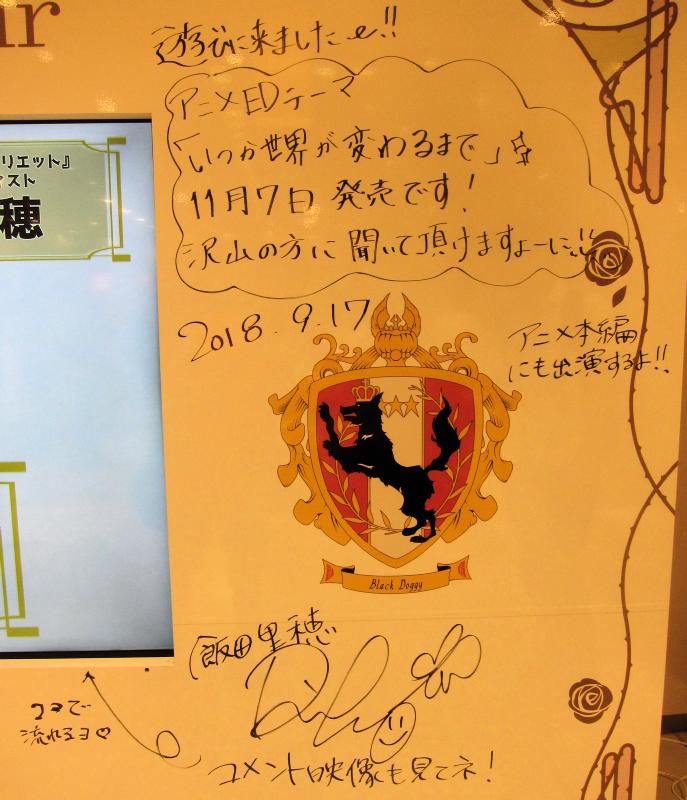 ur
遊びに来ましたe!!
アニメEDテーマ
「いつか世界が変わるまで」
11月7日 発売です!
沢山の方に聞いて頂けますよーに!!
リエット』
スト
穂
2018.9.17
アニメ本編
にも出演するよ!!
Black Doggy
飯田里穂
ココで
流れるヨ♡
コメント映像も見てネ!